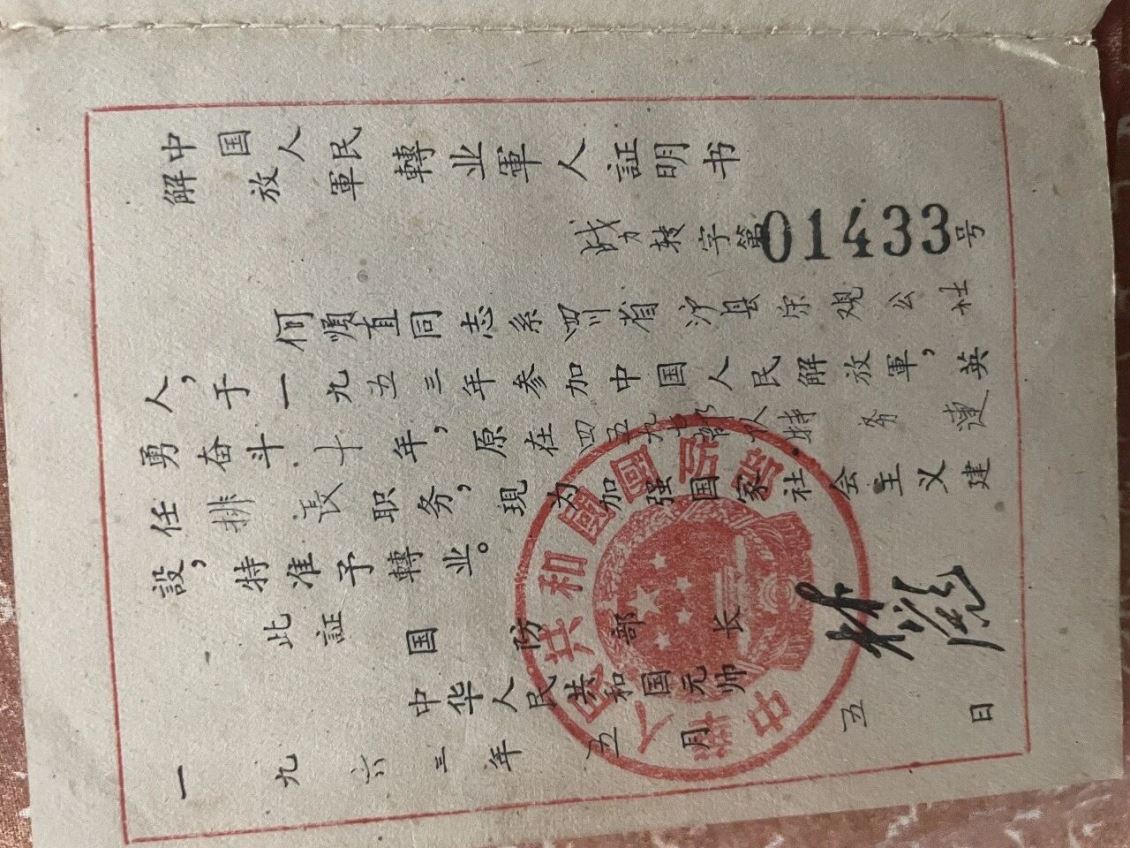 中国人民
解放軍
轉业軍人証明书
战力转字第01433号
何順直同志系四川省泸县宗观公社
人，于一九五三年参加中国人民解放軍，英
勇奋斗十年，原在四五九部队特务連
任排長职务，現为加强国家社会主义建
設，特准予轉业。
此証
国防部长
中华人民共和国元帅
林彪
一九六三年五月五日
中華人民共和國國防部